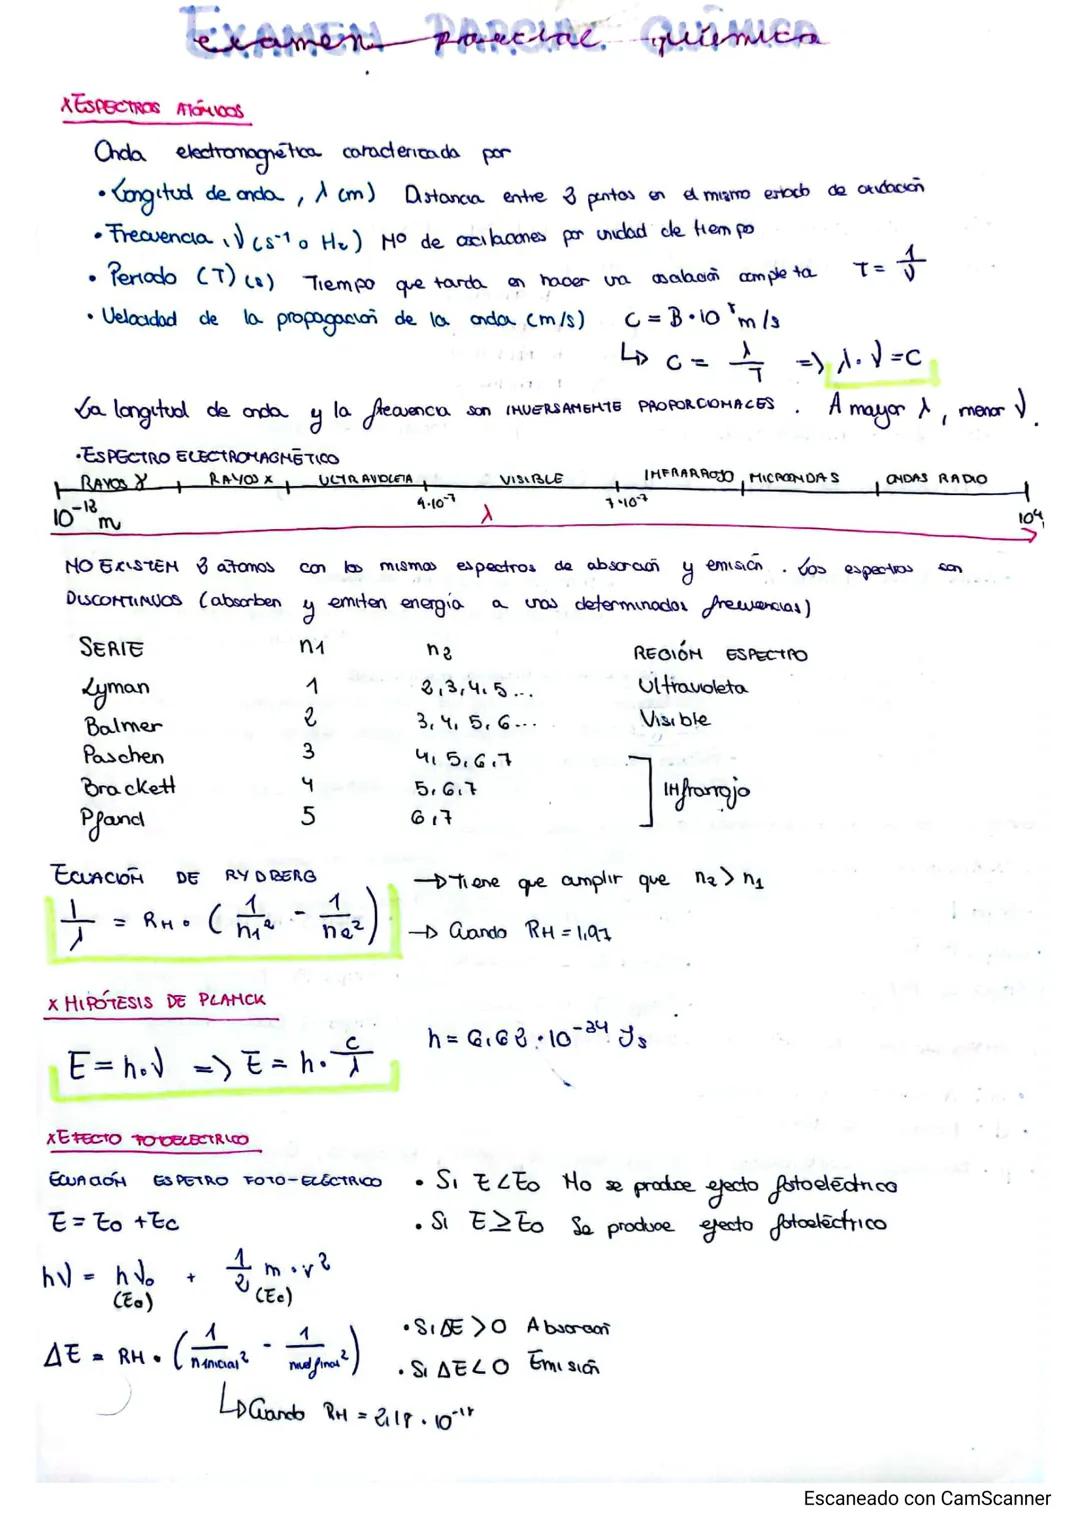 EXAMEN PARCIAL QUÍMICA
examen parcial química
X ESPECTROS ATÓMICOS
Onda electromagnética caracterizada por
• Longitud de onda, λ (m) Distancia entre 2 puntos en el mismo estado de
• Frecuencia, ν (s⁻¹ o Hz) Nº de oscilaciones por unidad de tiempo
• Periodo (T) (s) Tiempo que tarda en hacer una oscilación completa T = 1/ν
• Velocidad de la propagación de la onda (m/s) C = 3·10⁸ m/s
↳ C = λ/T => λ·ν = C
La longitud de onda y la frecuencia son INVERSAMENTE PROPORCIONALES. A mayor λ, menor ν.
• ESPECTRO ELECTROMAGNÉTICO
RAYOS γ RAYOS X ULTRAVIOLETA VISIBLE INFRARROJO MICROONDAS ONDAS RADIO
10⁻¹³ m 4·10⁻⁷ λ 7·10⁻⁷ 10⁴
NO EXISTEN 2 átomos con los mismos espectros de absorción y emisión. Los espectros son
DISCONTINUOS (absorben y emiten energía a unas determinadas frecuencias)
SERIE n1 n2 REGIÓN ESPECTRO
Lyman 1 2,3,4,5... Ultravioleta
Balmer 2 3,4,5,6... Visible
Paschen 3 4,5,6,7
Brackett 4 5,6,7 Infrarrojo
Pfand 5 6,7
ECUACIÓN DE RYDBERG → Tiene que cumplir que n2 > n1
1/λ = RH · (1/n1² - 1/n2²) → Cuando RH = 1,97
X HIPÓTESIS DE PLANCK
E = h·ν => E = h·c/λ h = 6,62·10⁻³⁴ Js
X EFECTO FOTOELECTRICO
ECUACIÓN ESPETRO FOTO-ELÉCTRICO • Si E < Eo No se produce efecto fotoeléctrico
E = Eo + Ec • Si E ≥ Eo Se produce efecto fotoeléctrico
hν = hν₀ + 1/2 m·v²
(Eo) (Ec)
• Si ΔE > 0 Absorción
ΔE = RH · (1/n inicial² - 1/nivel final²) • Si ΔE < 0 Emisión
↳ Cuando RH = 2,18·10⁻¹⁸
Escaneado con CamScanner